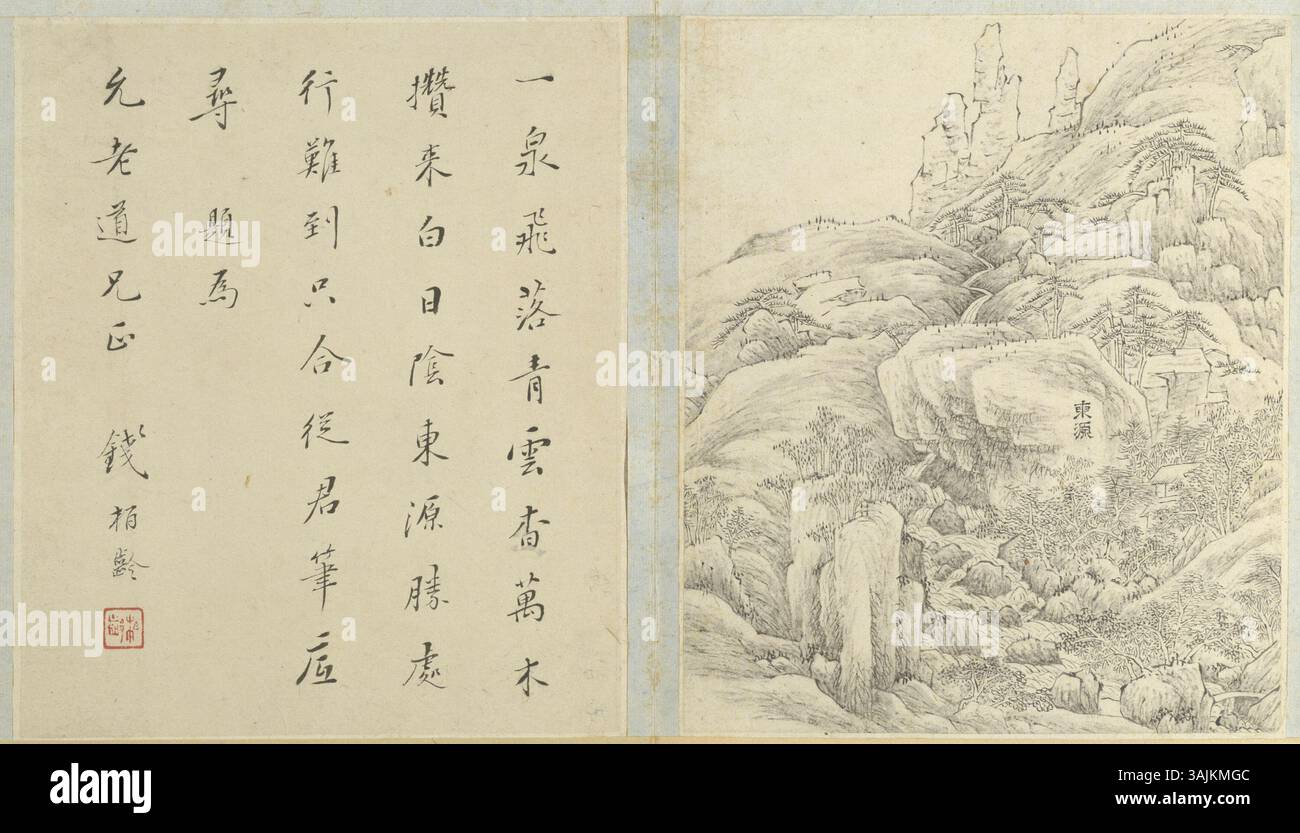 一泉飛落青雲杳萬木
攢来白日陰東源勝處
行難到只合從君筆底
尋 題為
允老道兄正 錢柏齡
東源
alamy
Image ID: 3AJKMGC
www.alamy.com